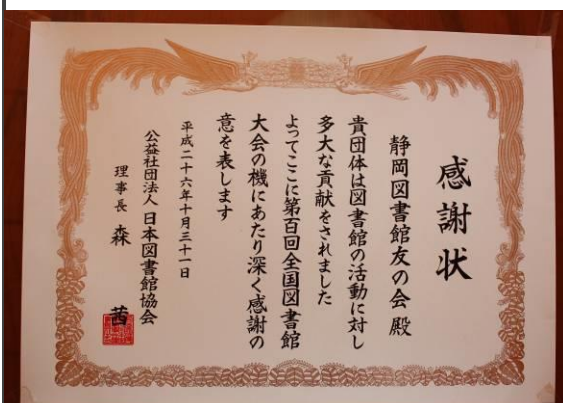 感謝状
静岡図書館友の会 殿
貴団体は図書館の活動に対し
多大な貢献をされました
よってここに第百回全国図書館
大会の機にあたり深く感謝の
意を表します
平成二十六年十月三十一日
公益社団法人 日本図書館協会
理事長 森 茜